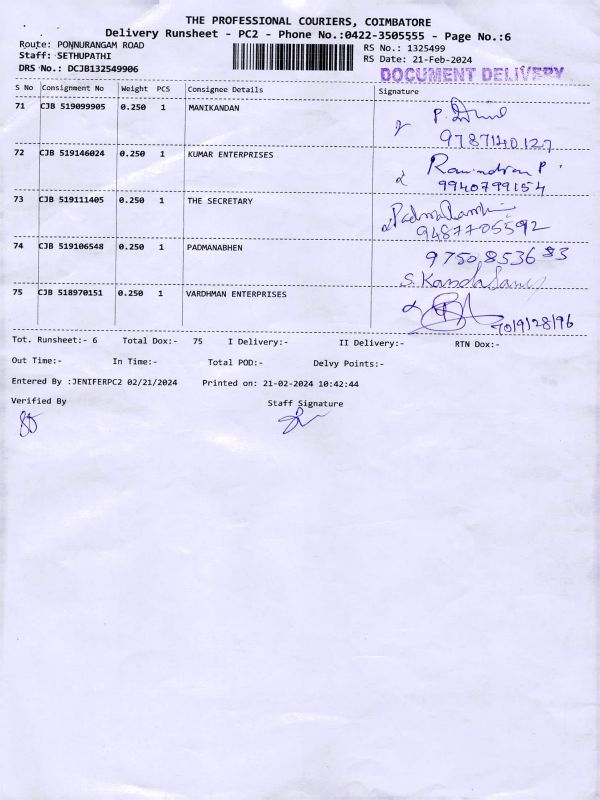 THE PROFESSIONAL COURIERS, COIMBATORE
Delivery Runsheet - PC2 - Phone No.:0422-3505555 - Page No.:6
Route: PONNURANGAM ROAD
Staff: SETHUPATHI
DRS No.: DCJB132549906
RS No.: 1325499
RS Date: 21-Feb-2024
DOCUMENT DELIVERY
S No Consignment No Weight PCS Consignee Details Signature
71 CJB 519099905 0.250 1 MANIKANDAN
9787140127
72 CJB 519146024 0.250 1 KUMAR ENTERPRISES
9940799154
73 CJB 519111405 0.250 1 THE SECRETARY
9487705592
74 CJB 519106548 0.250 1 PADMANABHEN
9750853683
75 CJB 518970151 0.250 1 VARDHMAN ENTERPRISES
Tot. Runsheet:- 6 Total Dox:- 75 I Delivery:- II Delivery:- RTN Dox:-
Out Time:- In Time:- Total POD:- Delvy Points:-
Entered By :JENIFERPC2 02/21/2024 Printed on: 21-02-2024 10:42:44
Verified By Staff Signature